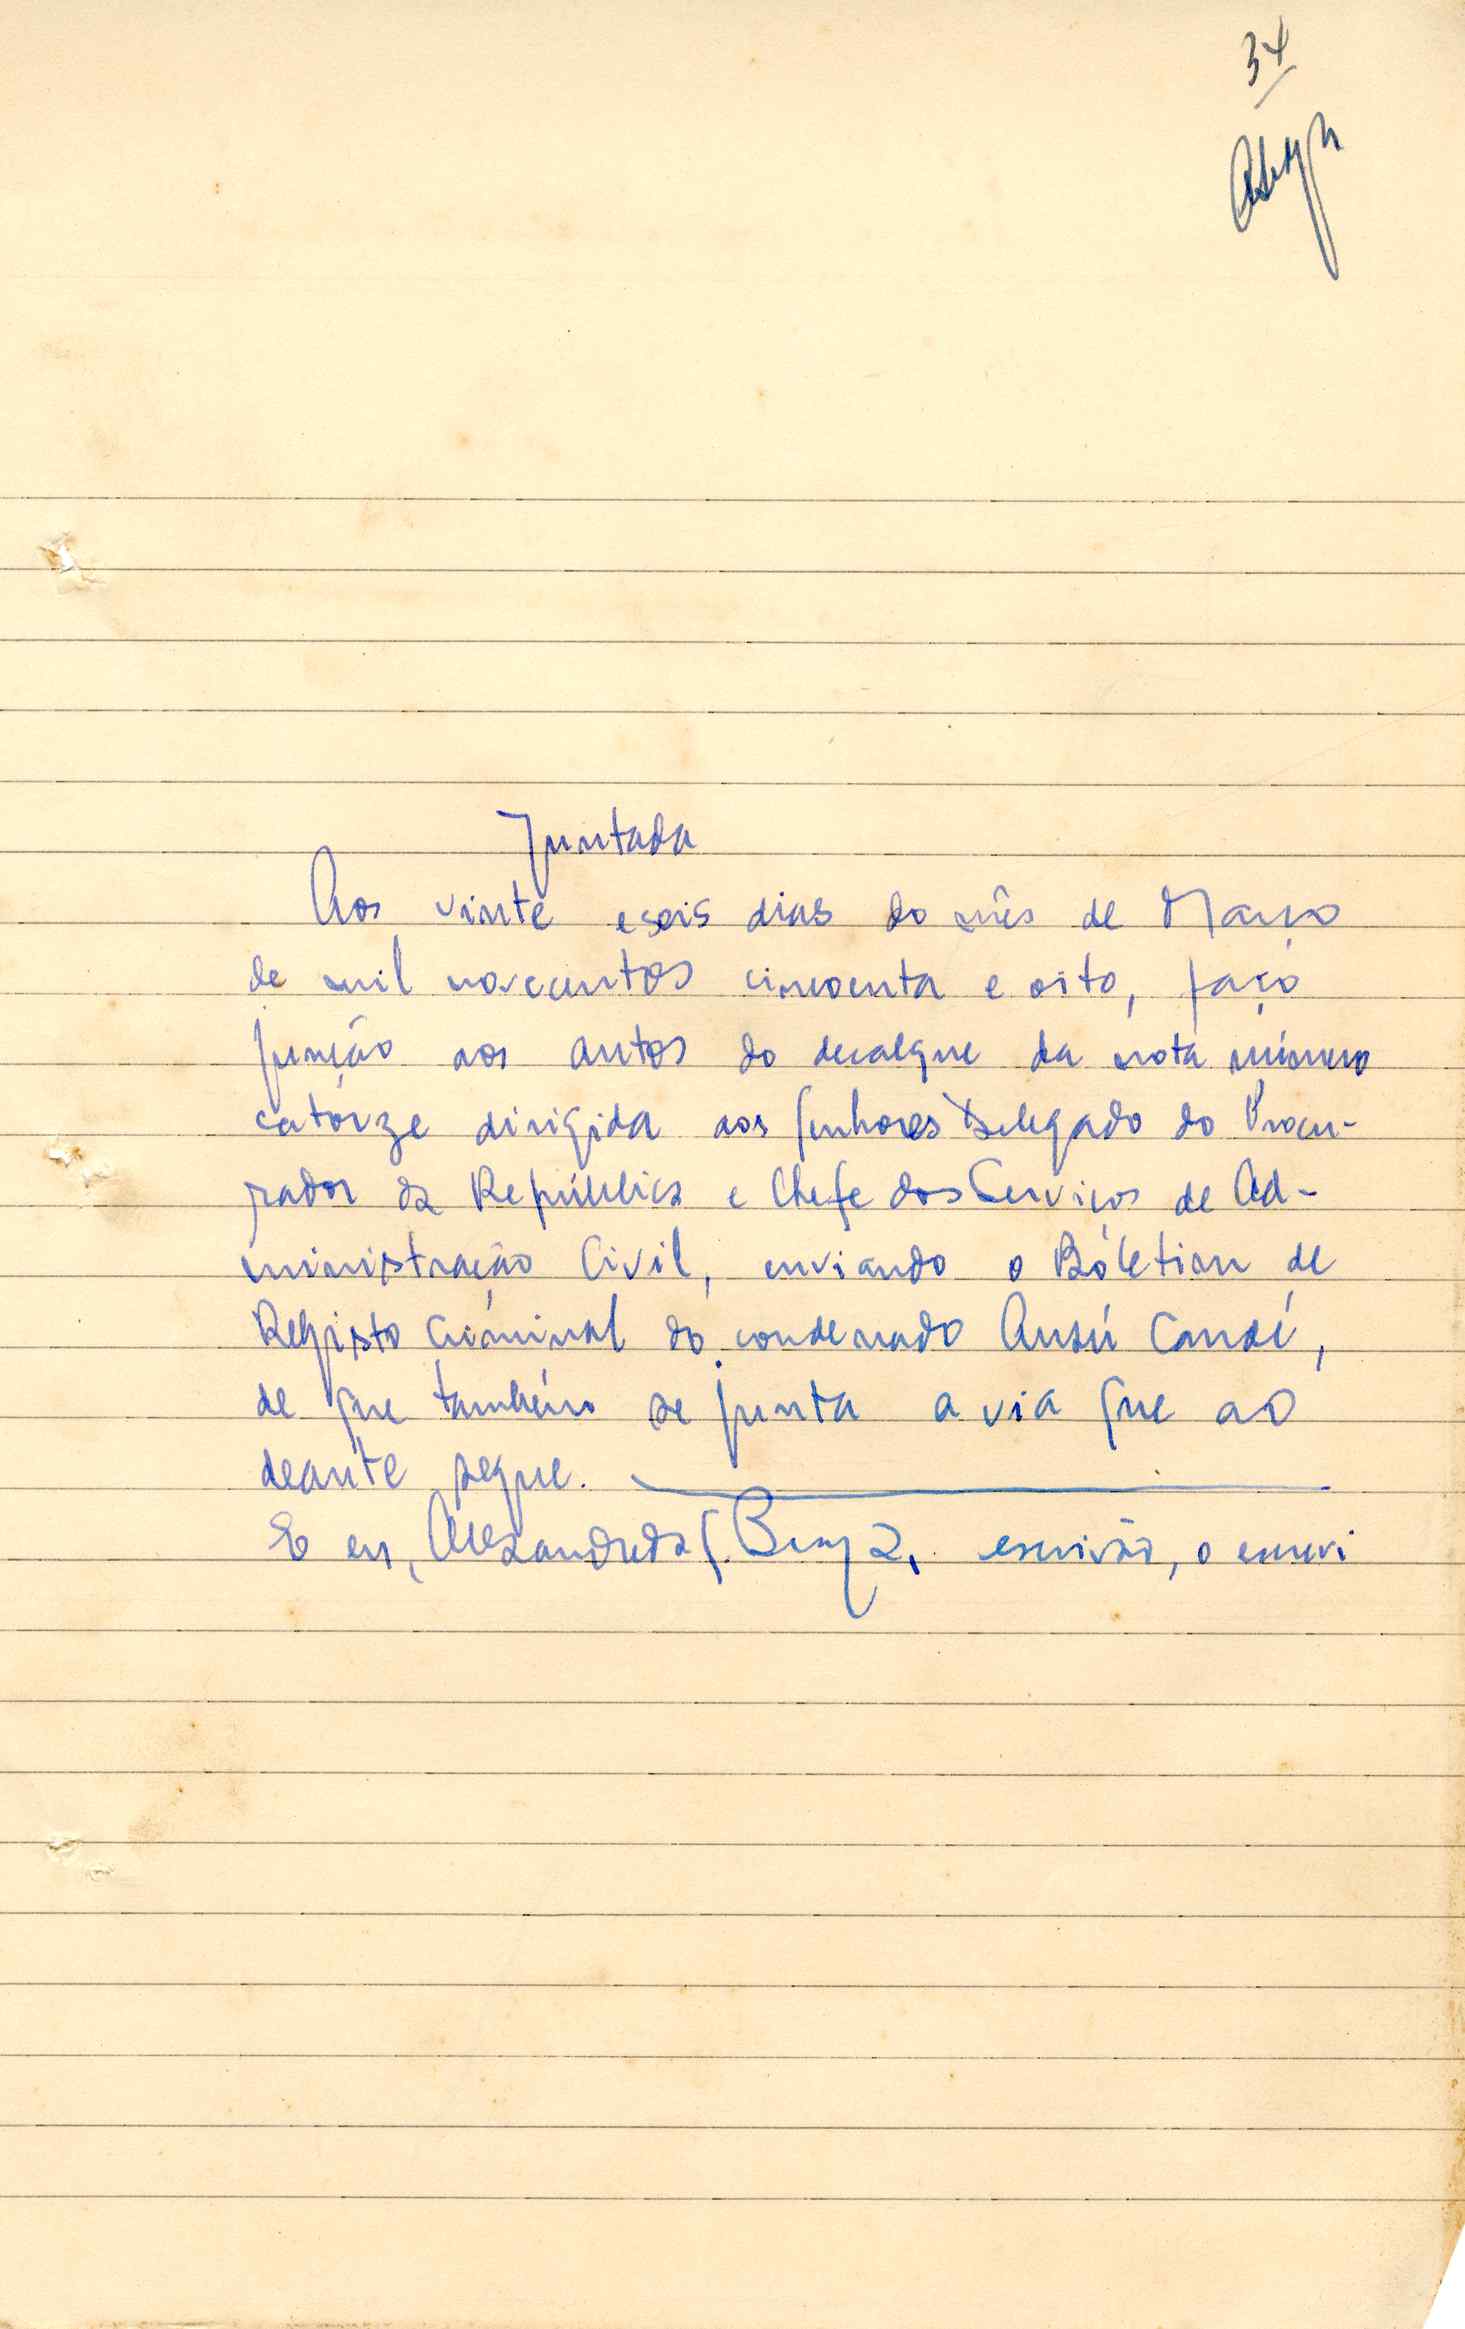 34
Juntada
Aos vinte e seis dias do mês de Março
de mil novecentos cincoenta e oito, faço
junção aos autos do decalque da nota número
catórze dirigida aos Senhores Delegado do Procu-
rador da República e Chefe dos Serviços de Ad-
ministração Civil, enviando o Bóletim de
Registo Criminal do condenado Ansú Candé,
de que também se junta a via que ao
deante segue.
E eu, Alexandre da S. Braga, escrivão, o escrevi